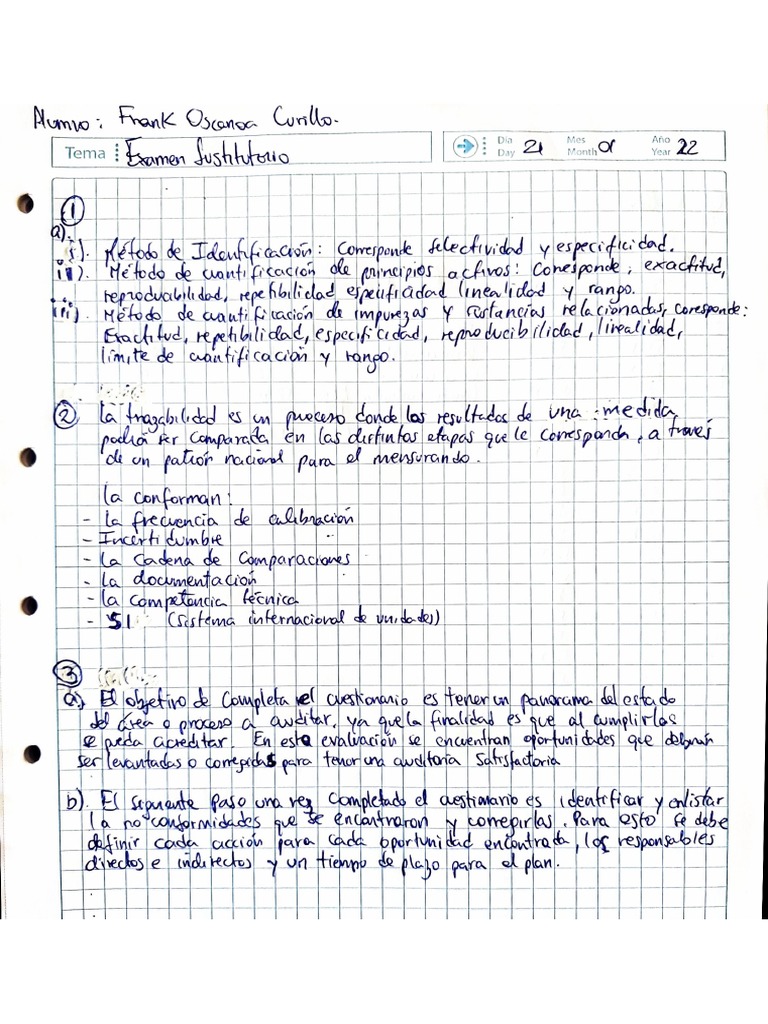 Alumno: Frank Oscanoa Curillo.
Tema Examen Sustitutorio Día Day 21 Mes Month 01 Año Year 22
①
a).
i). Método de Identificación: Corresponde selectividad y especificidad.
ii). Método de cuantificación de principios activos: Corresponde, exactitud,
reproducabilidad, repetibilidad especificidad linealidad y rango.
iii). Método de cuantificación de impurezas y sustancias relacionadas, corresponde:
Exactitud, repetibilidad, especificidad, reproducibilidad, linealidad,
límite de cuantificación y rango.
② La trazabilidad es un proceso donde los resultados de una medida
podrá ser comparada en las distintas etapas que le corresponda, a través
de un patrón nacional para el mensurando.
La conforman:
- La frecuencia de calibración
- Incertidumbre
- La Cadena de Comparaciones
- La documentación
- La competencia técnica
- SI (Sistema internacional de unidades)
③
a) El objetivo de Completa el cuestionario es tener un panorama del estado
del área o proceso a auditar, ya que la finalidad es que al cumplirlas
se pueda acreditar. En esta evaluación se encuentran oportunidades que deberán
ser levantadas o corregidas para tener una auditoria satisfactoria
b). El siguiente paso una vez completado el cuestionario es identificar y enlistar
la no conformidades que se encontraron y corregirlas. Para esto se debe
definir cada acción para cada oportunidad encontrada, los responsables
directos e indirectos y un tiempo de plazo para el plan.